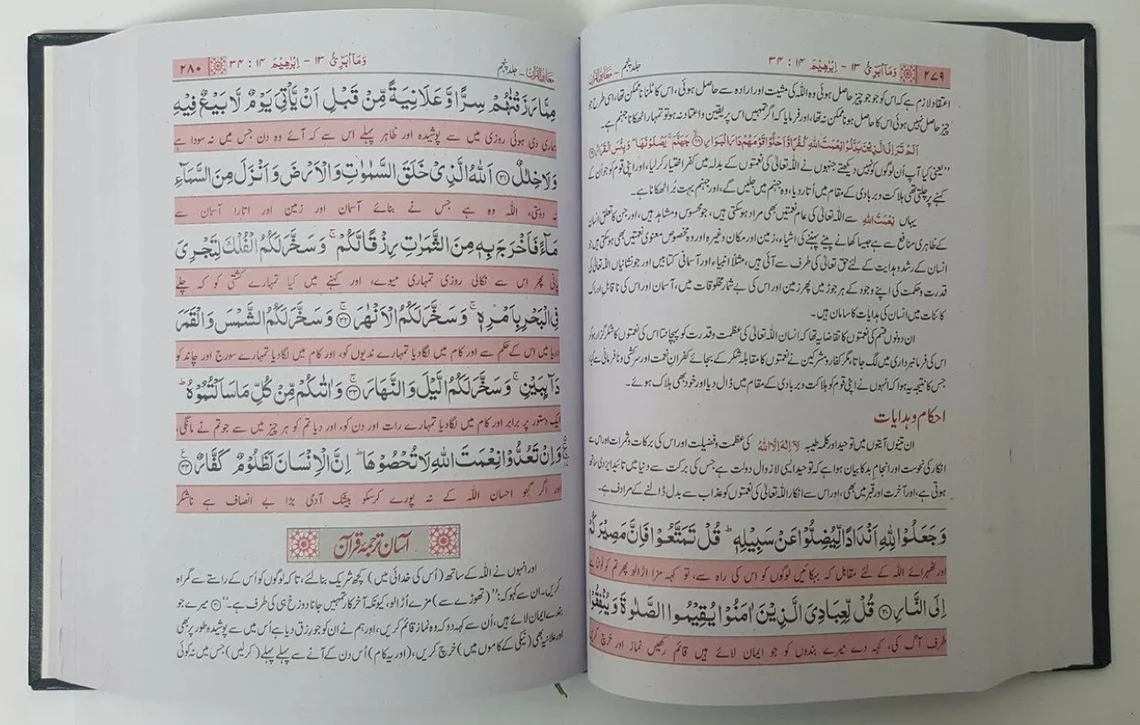 ۲۷۹ وَمَآ اُبَرِّئُ ۱۳ - اِبْرٰهِیْمَ ۱۴ : ۳۴ جلد پنجم
اعتقاد لازم ہے کہ اس کو جو جو چیز حاصل ہوئی وہ اللہ کی مشیت اور ارادہ سے حاصل ہوئی، اس کا ٹلنا ناممکن تھا، اسی طرح جو
چیز حاصل نہیں ہوئی اس کا حاصل ہونا ممکن نہ تھا، اور فرمایا کہ اگر تمہیں اس پر یقین و اعتماد نہ ہو تو تمہارا ٹھکانا جہنم ہے۔
اَلَمْ تَرَ اِلَى الَّذِيْنَ بَدَّلُوْا نِعْمَتَ اللّٰهِ كُفْرًا وَّاَحَلُّوْا قَوْمَهُمْ دَارَ الْبَوَارِ ۙ۲۸ جَهَنَّمَ ۚ يَصْلَوْنَهَا ؕ وَبِئْسَ الْقَرَارُ
”یعنی کیا آپ ان لوگوں کو نہیں دیکھتے جنہوں نے اللہ تعالیٰ کی نعمتوں کے بدلہ میں کفر اختیار کر لیا، اور اپنی قوم کو جو ان کے
کہنے پر چلتی تھی ہلاکت و بربادی کے مقام میں اُتار دیا، وہ جہنم میں جلیں گے، اور جہنم بہت بُرا ٹھکانا ہے۔
یہاں نِعْمَتَ اللّٰهِ سے اللہ تعالیٰ کی عام نعمتیں بھی مراد ہو سکتی ہیں، جو محسوس و مشاہد ہیں، اور جن کا تعلق انسان
کے ظاہری منافع سے ہے جیسا کھانے پینے پہننے کی اشیاء، زمین اور مکان وغیرہ اور وہ مخصوص معنوی نعمتیں بھی ہو سکتی ہیں جو
انسان کے رشد و ہدایت کے لئے حق تعالیٰ کی طرف سے آئی ہیں، مثلاً انبیاء اور آسمانی کتابیں اور جو نشانیاں اللہ تعالیٰ کی
قدرت و حکمت کی اپنے وجود کے ہر جوڑ میں پھر زمین اور اس کی بے شمار مخلوقات میں، آسمان اور اس کی ناقابلِ ادراک
کائنات میں انسان کی ہدایات کا سامان ہیں۔
ان دونوں قسم کی نعمتوں کا تقاضا یہ تھا کہ انسان اللہ تعالیٰ کی عظمت و قدرت کو پہچانتا اس کی نعمتوں کا شکر گزار ہو کر
اس کی فرمانبرداری میں لگ جاتا، مگر کفار و مشرکین نے نعمتوں کا مقابلہ شکر کے بجائے کفرانِ نعمت اور سرکشی و نافرمانی سے کیا،
جس کا نتیجہ یہ ہوا کہ انہوں نے اپنی قوم کو ہلاکت و بربادی کے مقام میں ڈال دیا اور خود بھی ہلاک ہوئے۔
احکام و ہدایات
ان تینوں آیتوں میں توحید اور کلمہ طیبہ لَآ اِلٰهَ اِلَّا اللّٰهُ کی عظمت و فضیلت اور اس کی برکات و ثمرات اور اس سے
انکار کی نحوست اور انجامِ بد کا بیان ہوا ہے کہ توحید ایسی لازوال دولت ہے جس کی برکت سے دنیا میں تائید ایزدی ساتھ
ہوتی ہے، اور آخرت اور قبر میں بھی، اور اس سے انکار اللہ تعالیٰ کی نعمتوں کو عذاب سے بدل ڈالنے کے مرادف ہے۔
وَجَعَلُوْا لِلّٰهِ اَنْدَادًا لِّيُضِلُّوْا عَنْ سَبِيْلِهٖ ؕ قُلْ تَمَتَّعُوْا فَاِنَّ مَصِيْرَكُمْ
اور ٹھہرائے اللہ کے لئے مقابل کہ بہکائیں لوگوں کو اس کی راہ سے، تو کہہ مزا اڑالو پھر تم کو لوٹنا ہے
اِلَى النَّارِ ۳۰ قُلْ لِّعِبَادِيَ الَّذِيْنَ اٰمَنُوْا يُقِيْمُوا الصَّلٰوةَ وَيُنْفِقُوْا
طرف آگ کی، کہہ دے میرے بندوں کو جو ایمان لائے ہیں قائم رکھیں نماز اور خرچ کریں
۲۸۰ وَمَآ اُبَرِّئُ ۱۳ - اِبْرٰهِیْمَ ۱۴ : ۳۴ معارف القرآن - جلد پنجم
مِمَّا رَزَقْنٰهُمْ سِرًّا وَّعَلَانِيَةً مِّنْ قَبْلِ اَنْ يَّاْتِيَ يَوْمٌ لَّا بَيْعٌ فِيْهِ
ہماری دی ہوئی روزی میں سے پوشیدہ اور ظاہر پہلے اس سے کہ آئے وہ دن جس میں نہ سودا ہے
وَلَا خِلٰلٌ ۳۱ اَللّٰهُ الَّذِيْ خَلَقَ السَّمٰوٰتِ وَالْاَرْضَ وَاَنْزَلَ مِنَ السَّمَآءِ
نہ دوستی، اللہ وہ ہے جس نے بنائے آسمان اور زمین اور اتارا آسمان سے
مَآءً فَاَخْرَجَ بِهٖ مِنَ الثَّمَرٰتِ رِزْقًا لَّكُمْ ۚ وَسَخَّرَ لَكُمُ الْفُلْكَ لِتَجْرِيَ
پانی پھر اس سے نکالی روزی تمہاری میوے، اور کہنے میں کیا تمہارے کشتی کو کہ چلے
فِي الْبَحْرِ بِاَمْرِهٖ ۚ وَسَخَّرَ لَكُمُ الْاَنْهٰرَ ۚ۳۲ وَسَخَّرَ لَكُمُ الشَّمْسَ وَالْقَمَرَ
دریا میں اس کے حکم سے اور کام میں لگا دیا تمہارے ندیوں کو، اور کام میں لگا دیا تمہارے سورج اور چاند کو
دَآئِبَيْنِ ۚ وَسَخَّرَ لَكُمُ الَّيْلَ وَالنَّهَارَ ۚ۳۳ وَاٰتٰىكُمْ مِّنْ كُلِّ مَا سَاَلْتُمُوْهُ ؕ
ایک دستور پر برابر اور کام میں لگا دیا تمہارے رات اور دن کو، اور دیا تم کو ہر چیز میں سے جو تم نے مانگی،
وَاِنْ تَعُدُّوْا نِعْمَتَ اللّٰهِ لَا تُحْصُوْهَا ؕ اِنَّ الْاِنْسَانَ لَظَلُوْمٌ كَفَّارٌ ۳۴
اور اگر گنو احسان اللہ کے نہ پورے کر سکو بیشک آدمی بڑا بے انصاف ہے ناشکر
آسان ترجمۂ قرآن
اور انہوں نے اللہ کے ساتھ (اُس کی خدائی میں) کچھ شریک بنا لئے، تاکہ لوگوں کو اُس کے راستے سے گمراہ
کریں۔ ان سے کہو کہ: ”(تھوڑے سے) مزے اُڑا لو، کیونکہ آخرکار تمہیں جانا دوزخ ہی کی طرف ہے۔“ ۳۰ میرے جو
بندے ایمان لائے ہیں، اُن سے کہہ دو کہ وہ نماز قائم کریں، اور ہم نے ان کو جو رزق دیا ہے اُس میں سے پوشیدہ طور پر بھی
اور علانیہ بھی (نیکی کے کاموں میں) خرچ کریں، (اور یہ کام) اُس دن کے آنے سے پہلے پہلے (کر لیں) جس میں نہ کوئی